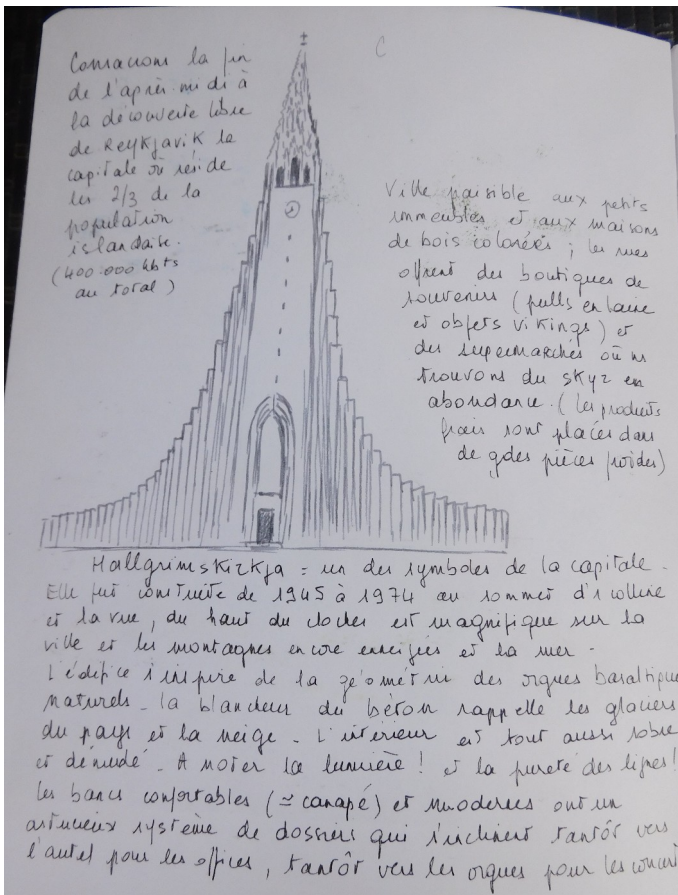 Consacrons la fin
de l'après-midi à
la découverte libre
de Reykjavik la
capitale où réside
les 2/3 de la
population
islandaise.
(400.000 hbts
au total)
C
Ville paisible aux petits
immeubles et aux maisons
de bois colorées ; les rues
offrent des boutiques de
souvenirs (pulls en laine
et objets vikings) et
des supermarchés où ns
trouvons du skyr en
abondance. (les produits
frais sont placés dans
de gdes pièces froides)
Hallgrimskirkja = un des symboles de la capitale.
Elle fut construite de 1945 à 1974 au sommet d'1 colline
et la vue, du haut du clocher est magnifique sur la
ville et les montagnes encore enneigées et la mer.
L'édifice s'inspire de la géométrie des orgues basaltiques
naturels. La blancheur du béton rappelle les glaciers
du pays et la neige. L'intérieur est tout aussi sobre
et dénudé. A noter la lumière ! et la pureté des lignes !
Les bancs confortables (≃ canapé) et modernes ont un
astucieux système de dossiers qui s'inclinent tantôt vers
l'autel pour les offices, tantôt vers les orgues pour les concert